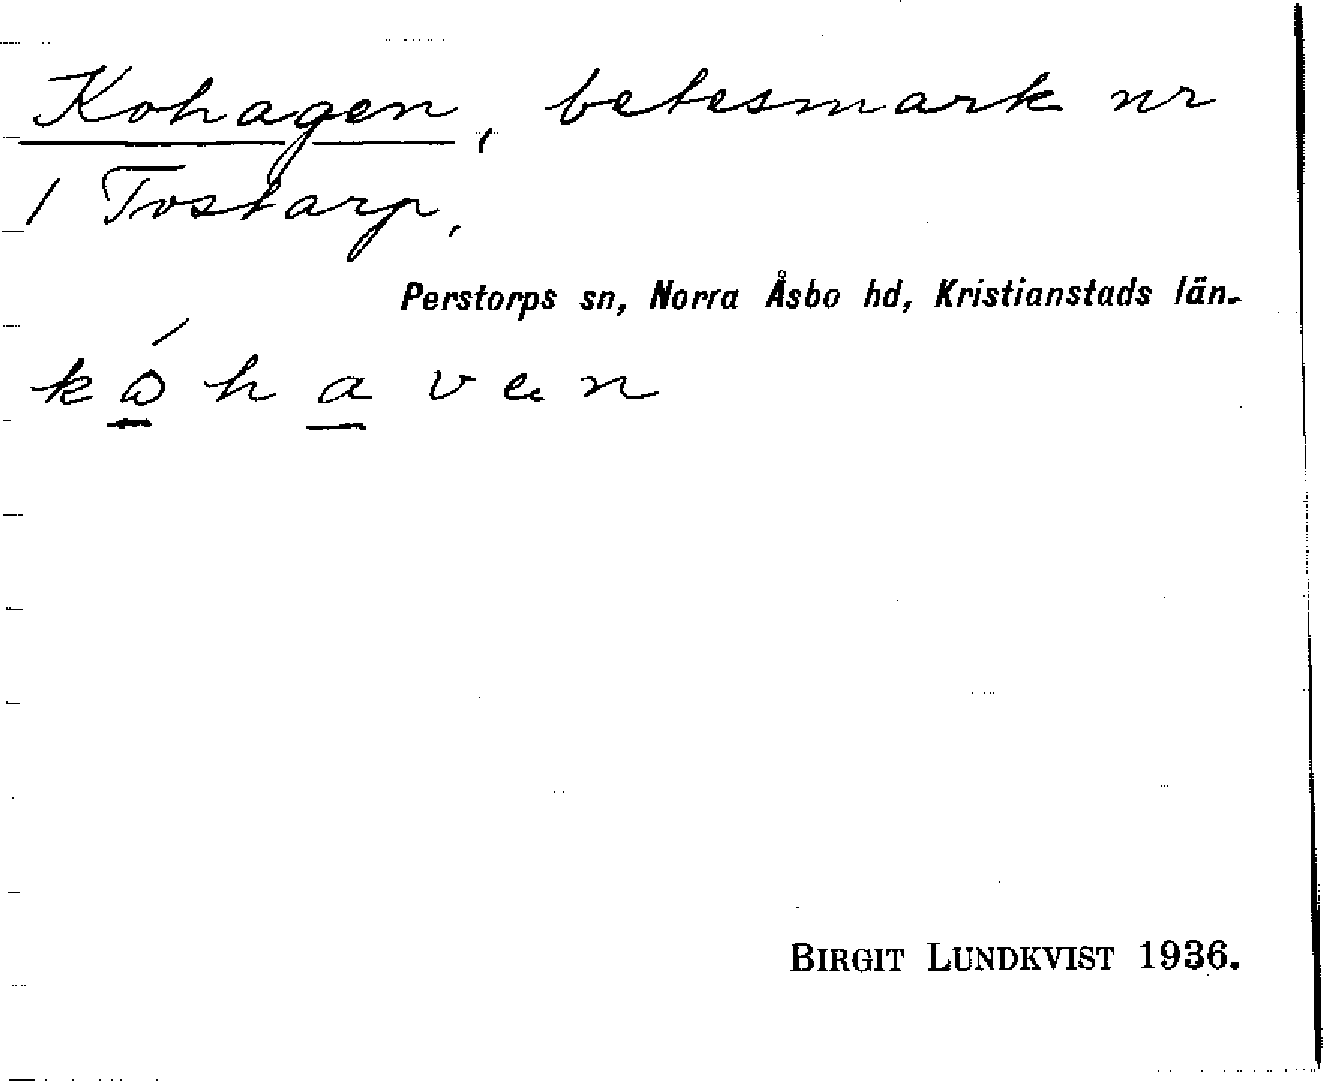 Kohagen, betesmark nr
1 Tostarp.
Perstorps sn, Norra Åsbo hd, Kristianstads län.
kóhaven
BIRGIT LUNDKVIST 1936.